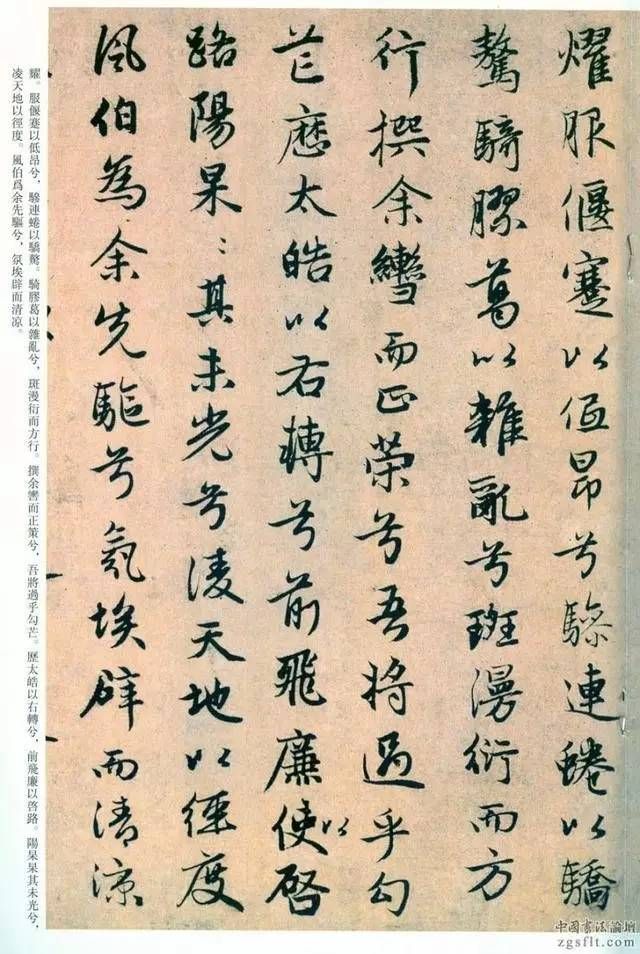 耀服偃蹇以低昂兮驂連蜷以驕
驁騎膠葛以雜亂兮斑漫衍而方
行撰余轡而正策兮吾將過乎勾
芒歷太皓以右轉兮前飛廉使以啓
路陽杲〻其未光兮凌天地以徑度
風伯為余先驅兮氛埃辟而清涼
耀。服偃蹇以低昂兮，驂連蜷以驕驁。騎膠葛以雜亂兮，斑漫衍而方行。撰余轡而正策兮，吾將過乎勾芒。歷太皓以右轉兮，前飛廉以啓路。陽杲杲其未光兮，
凌天地以徑度。風伯爲余先驅兮，氛埃辟而清凉。
中國書法論壇
zgsflt.com